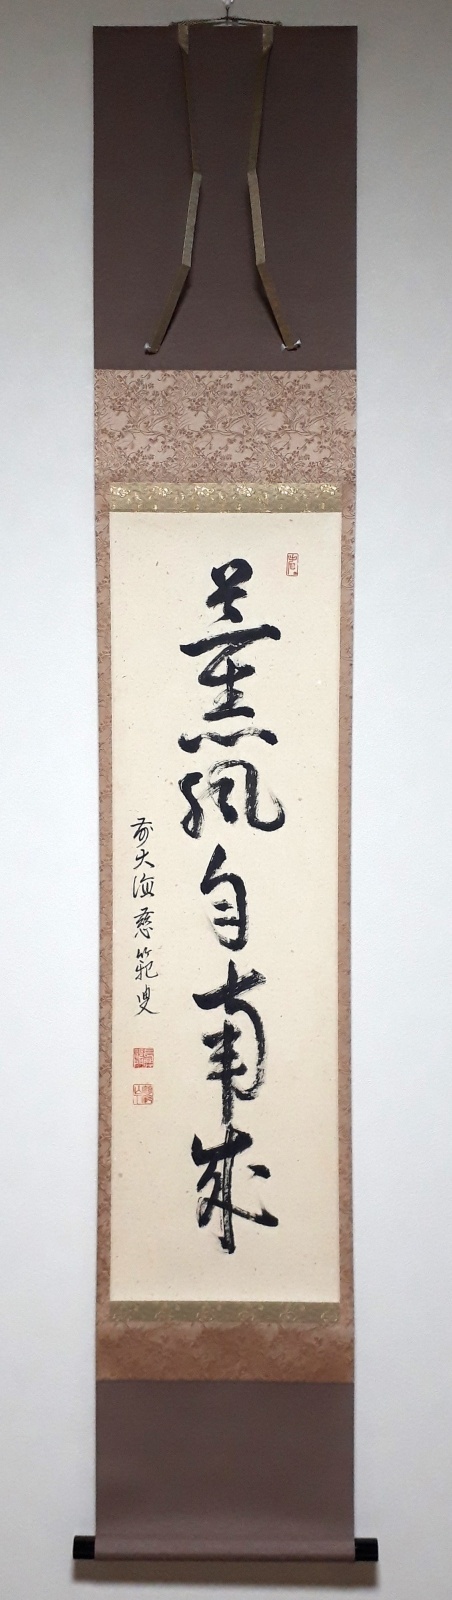 薫風自南来
前大徳慈範叟